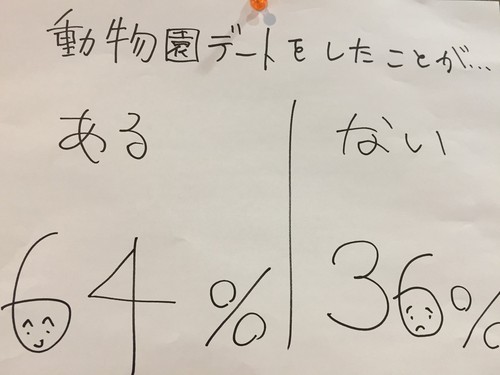 動物園デートをしたことが...
ある ない
64% 36%